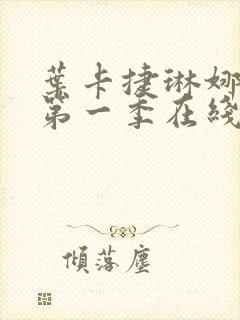 葉卡捷琳娜
第一季在綫
傾落塵